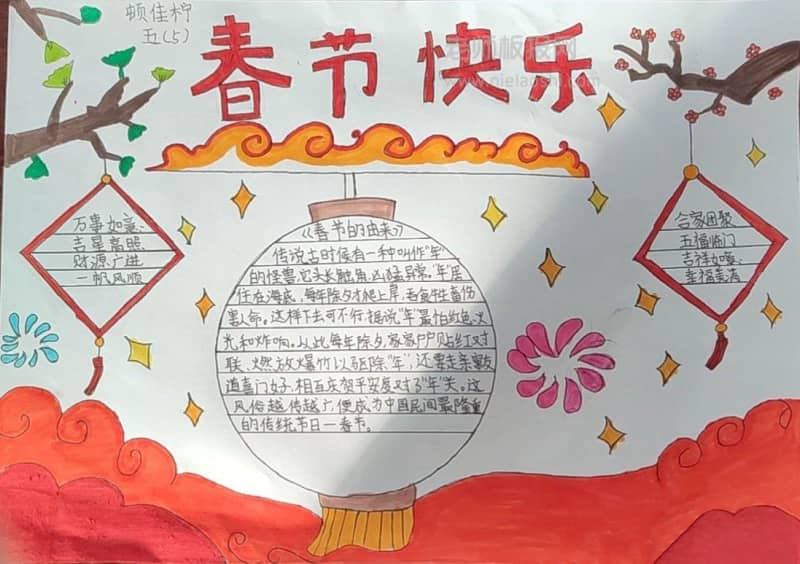 顿佳柠
五(5)
春节快乐
老师板报网
万事如意
吉星高照
财源广进
一帆风顺
《春节的由来》
传说古时候有一种叫作"年"
的怪兽,它头长触角,凶猛异常。"年"居
住在海底,每年除夕才爬上岸,吞食牲畜伤
害人命。这样下去可不行,据说"年"最怕红色、火
光和炸响。从此每年除夕,家家户户贴红对
联、燃放爆竹以驱除"年",还要走亲
道喜问好,相互庆贺平安度过了"年"关。这
风俗越传越广,便成为中国民间最隆重
的传统节日—春节。
合家团聚
五福临门
吉祥如意
幸福美满